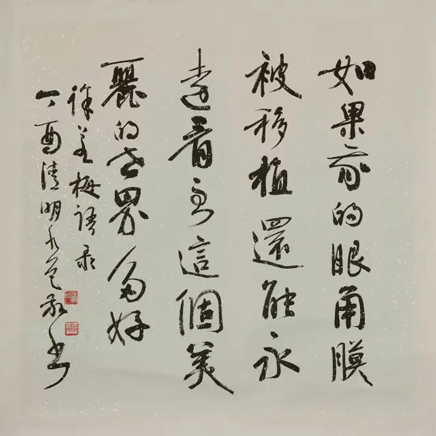 如果我的眼角膜
被移植還能永
遠看到這個美
麗的世界多好
徐若梅語录
丁酉清明永色敬书